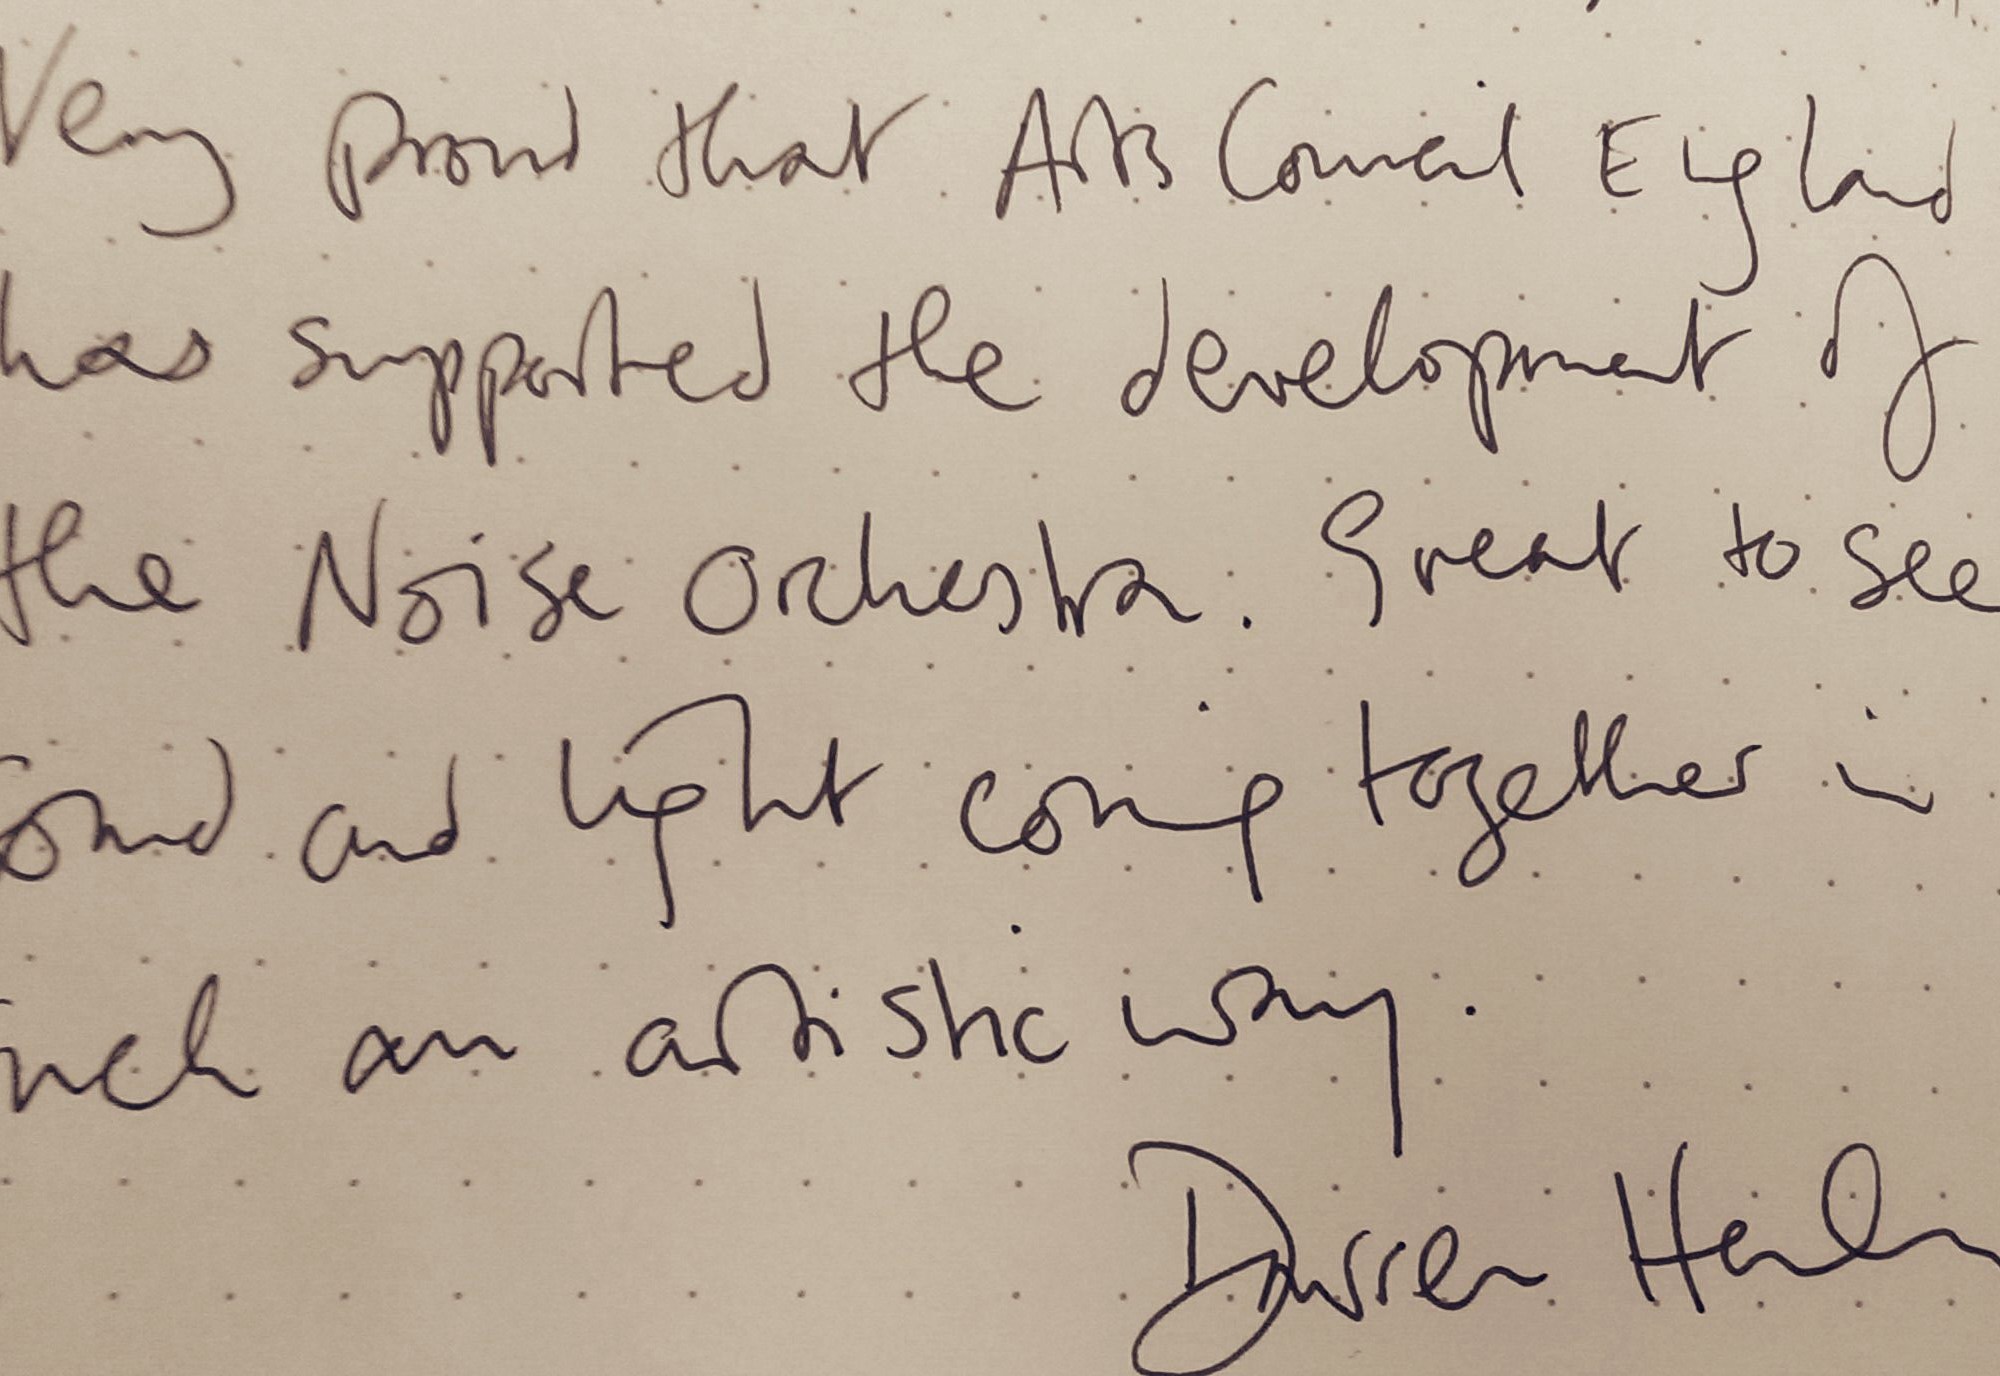 Very proud that Arts Council England
has supported the development of
the Noise Orchestra. Great to see
sound and light coming together in
such an artistic way.
Darren Henley